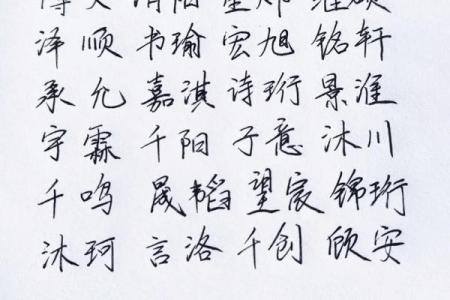 泽顺 书瑜 宏旭 铭轩
承允 嘉淇 诗珩 景淮
宇霖 千阳 子意 沐川
千鸣 晟韬 望宸 锦珩
沐珂 言洛 千创 顾安